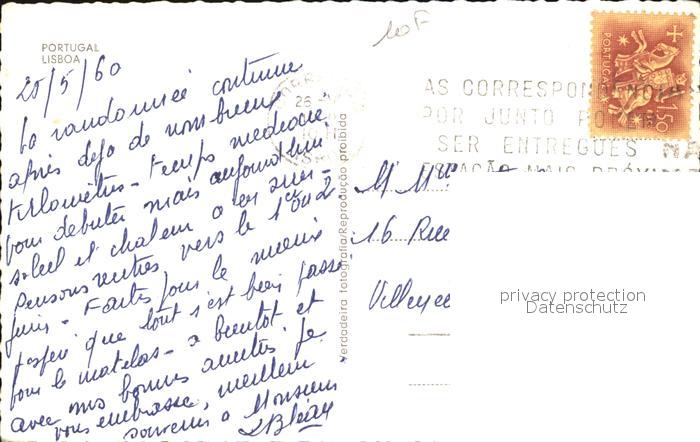 PORTUGAL
LISBOA
25/5/60
La randonnée continue
après déjà de nombreux
kilomètres - temps médiocre
pour débuter mais aujourd'hui
soleil et chaleur à en
Pensons rentrer vers le 1er ou 2
juin - Faites pour le mieux
J'espère que tout s'est bien passé
pour le matelas - à bientôt et
avec nos bonnes amitiés. Je
vous embrasse, meilleur
souvenir à Monsieur
Verdadeira fotografia/Reprodução proibida
10F
AS CORRESPOND
POR JUNTO PODEM
SER ENTREGUES NA
ESTAÇÃO MAIS PRÓXI
PORTUGAL
1$50
26
M Mme
16 Rue
privacy protection
Datenschutz